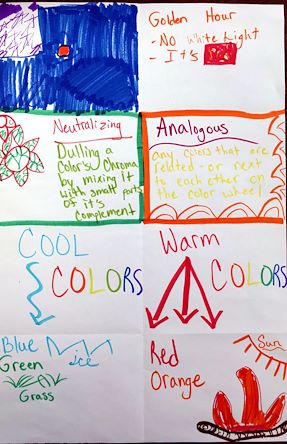 Golden Hour
- No White Light
- It's
Neutralizing
Dulling a
color's Chroma
by mixing it
with small parts
of it's
complement
Analogous
any colors that are
related - or next
to each other on
the color wheel
COOL
COLORS
Warm
COLORS
Blue
Ice
Green
Grass
Red
Orange
Sun